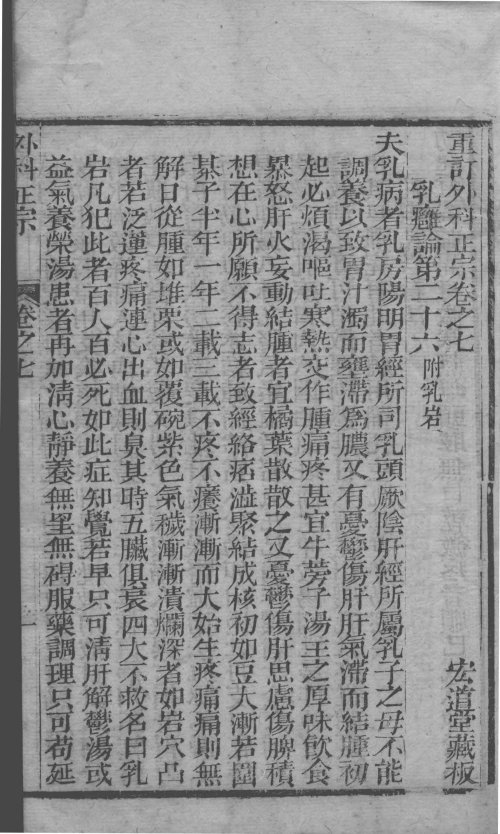 重訂外科正宗卷之七　宏道堂藏板
乳癰論第二十六 附乳岩
夫乳病者乳房陽明胃經所司乳頭厥陰肝經所屬乳子之母不能
調養以致胃汁濁而壅滯為膿又有憂鬱傷肝肝氣滯而結腫初
起必煩渴嘔吐寒熱交作腫痛疼甚宜牛蒡子湯主之厚味飲食
暴怒肝火妄動結腫者宜橘葉散散之又憂鬱傷肝思慮傷脾積
想在心所願不得志者致經絡痞澁聚結成核初如豆大漸若圍
棊子半年一年二載三載不疼不癢漸漸而大始生疼痛痛則無
解日從腫如堆栗或如覆碗紫色氣穢漸漸潰爛深者如岩穴凸
者若泛蓮疼痛連心出血則臭其時五臟俱衰四大不救名曰乳
岩凡犯此者百人百必死如此症知覺若早只可清肝解鬱湯或
益氣養榮湯患者再加清心靜養無罣無碍服藥調理只可苟延
外科正宗　卷之七　一